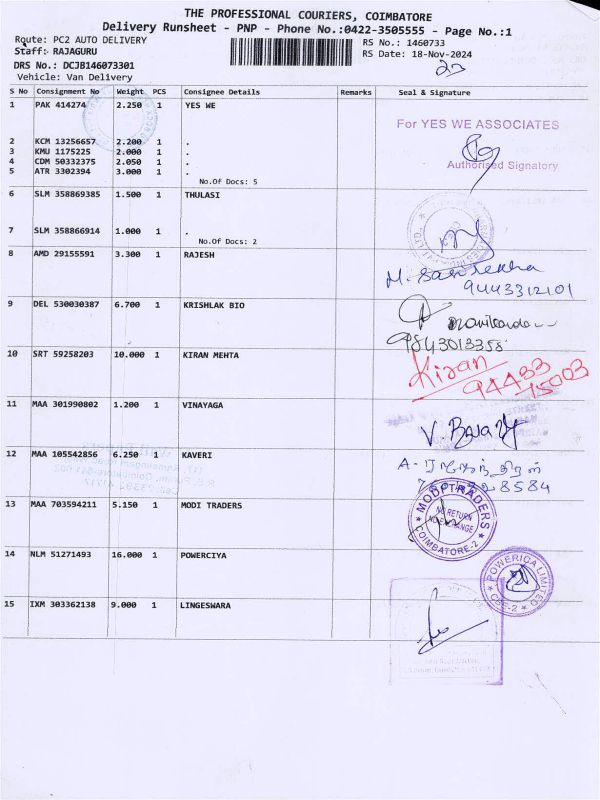 THE PROFESSIONAL COURIERS, COIMBATORE
Delivery Runsheet - PNP - Phone No.:0422-3505555 - Page No.:1
Route: PC2 AUTO DELIVERY
RS No.: 1460733
Staff: RAJAGURU
RS Date: 18-Nov-2024
DRS No.: DCJB146073301
Vehicle: Van Delivery
S No Consignment No Weight PCS Consignee Details Remarks Seal & Signature
1 PAK 414274 2.250 1 YES WE
For YES WE ASSOCIATES
Authorised Signatory
2 KCM 13256657 2.200 1 .
3 KMU 1175225 2.000 1 .
4 CDM 50332375 2.050 1 .
5 ATR 3302394 3.000 1 .
No.Of Docs: 5
6 SLM 358869385 1.500 1 THULASI
7 SLM 358866914 1.000 1 .
No.Of Docs: 2
8 AMD 29155591 3.300 1 RAJESH
9443312101
9 DEL 530030387 6.700 1 KRISHLAK BIO
9843013358
10 SRT 59258203 10.000 1 KIRAN MEHTA
Kiran
94433
15003
11 MAA 301990802 1.200 1 VINAYAGA
V. Balaji
12 MAA 105542856 6.250 1 KAVERI
8584
13 MAA 703594211 5.150 1 MODI TRADERS
MODI TRADERS
NO RETURN
NO EXCHANGE
COIMBATORE-2
14 NLM 51271493 16.000 1 POWERCIYA
POWERICA LIMITED
CBE-2
15 IXM 303362138 9.000 1 LINGESWARA